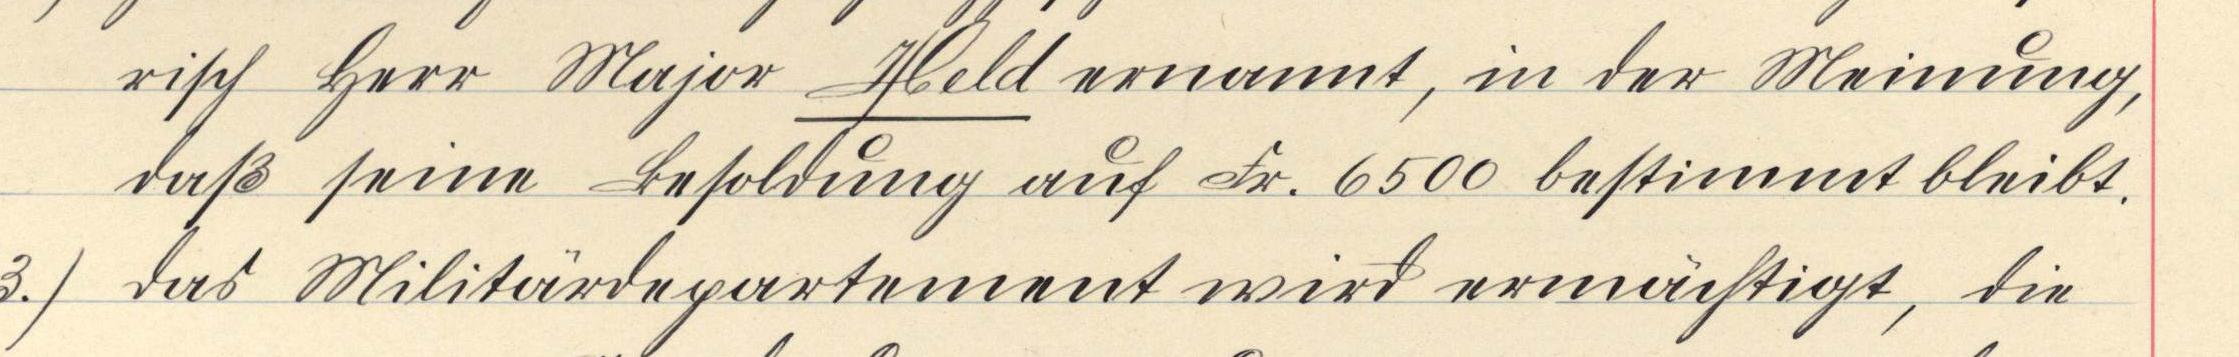 risch Herr Major Held ernannt, in der Meinung,
daß seine Besoldung auf Fr. 6500 bestimmt bleibt.
3.) das Militärdepartement wird ermächtigt, die